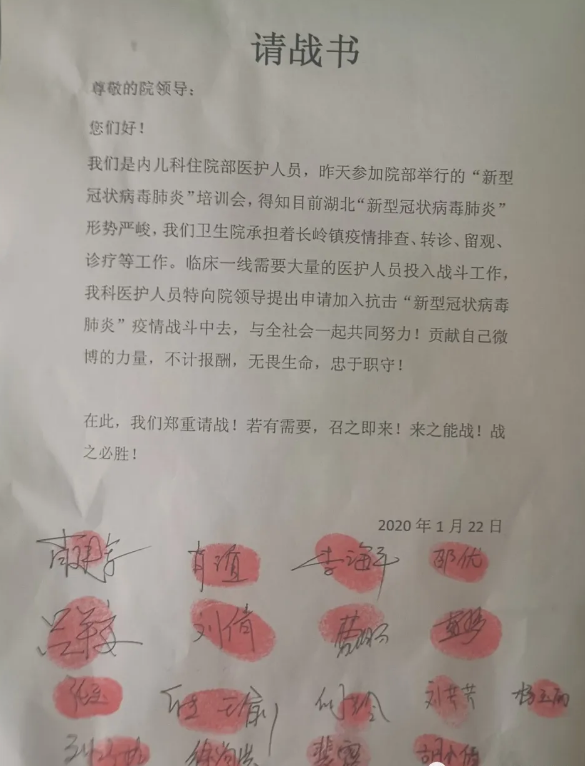 请战书
尊敬的院领导：
您们好！
我们是内儿科住院部医护人员，昨天参加院部举行的“新型
冠状病毒肺炎”培训会，得知目前湖北“新型冠状病毒肺炎”
形势严峻，我们卫生院承担着长岭镇疫情排查、转诊、留观、
诊疗等工作。临床一线需要大量的医护人员投入战斗工作，
我科医护人员特向院领导提出申请加入抗击“新型冠状病毒
肺炎”疫情战斗中去，与全社会一起共同努力！贡献自己微
博的力量，不计报酬，无畏生命，忠于职守！
在此，我们郑重请战！若有需要，召之即来！来之能战！战
之必胜！
2020 年 1 月 22 日
李海平 邵优
刘倩
刘芸芸